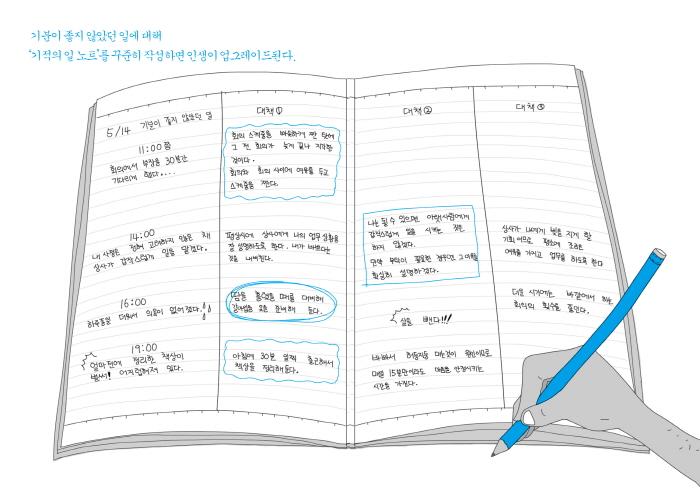 기분이 좋지 않았던 일에 대해
'기적의 일 노트'를 꾸준히 작성하면 인생이 업그레이드된다.
5/14 기분이 좋지 않았던 일
11:00 쯤
회의에서 부장을 30분간
기다리게 했다....
14:00
내 사정은 전혀 고려하지 않은 채
상사가 갑작스럽게 일을 맡겼다.
16:00
하루종일 더워서 의욕이 없어졌다.
19:00
얼마전에 정리한 책상이
벌써! 어지럽혀져 있다.
대책①
회의 스케줄을 빠듯하게 짠 탓에
그 전 회의가 늦게 끝나 지각한
것이다.
회의와 회의 사이에 여유를 두고
스케줄을 짠다.
평상시에 상사에게 나의 업무상황을
잘 설명하도록 한다. 내가 바쁘다는
것을 내비친다.
땀을 흘렸을 때를 대비해
갈아입을 옷을 준비해 둔다.
아침에 30분 일찍 출근해서
책상을 정리해둔다.
대책②
나는 될 수 있으면 아랫사람에게
갑작스럽게 일을 시키는 것은
하지 않겠다.
만약 부탁이 필요한 경우엔 그 이유를
확실히 설명하겠다.
살을 뺀다!!!
바빠서 허둥지둥 대는것이 원인이므로
매일 15분만이라도 마음을 안정시키는
시간을 가진다.
대책③
상사가 나에게 빚을 지게 할
기회이므로, 필요에 조금은
여유를 가지고 업무를 하도록 한다
다음 시기에는 바깥에서 하는
회의의 횟수를 줄인다.